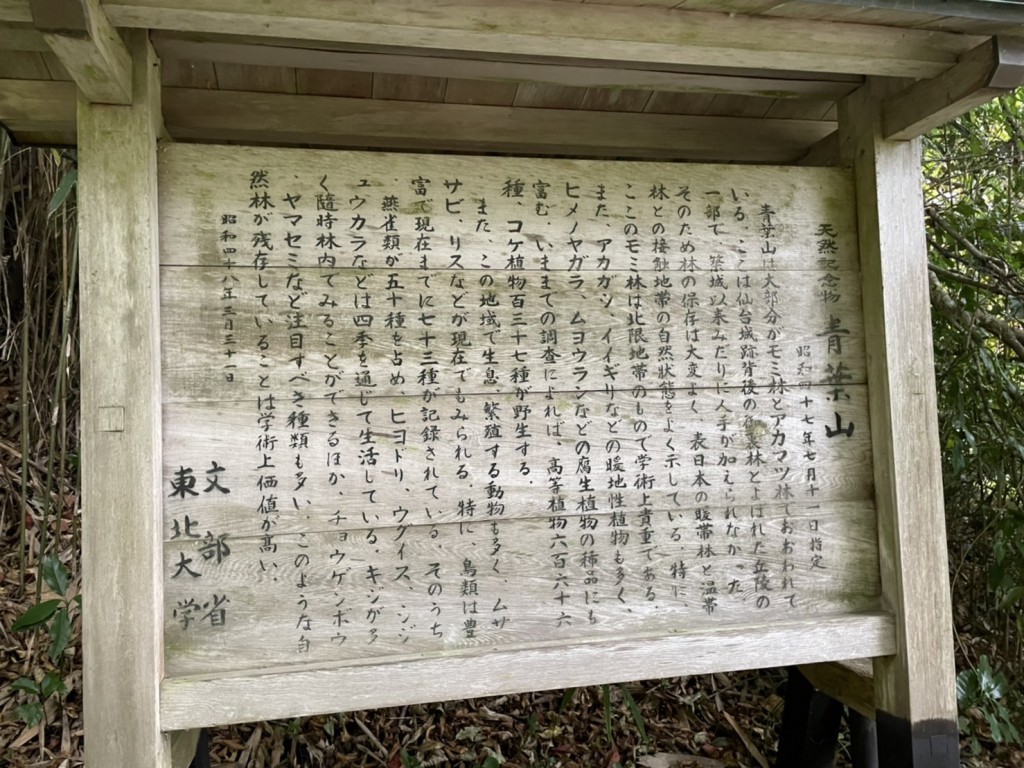 天然記念物 青葉山
昭和四十七年七月十一日指定
青葉山は大部分がモミ林とアカマツ林でおおわれて
いる。ここは仙台城跡背後の御裏林とよばれた丘陵の
一部で、築城以来みだりに人手が加えられなかった
そのため林の保存は大変よく、表日本の暖帯林と温帯
林との接触地帯の自然状態をよく示している。特に、
ここのモミ林は北限地帯のもので学術上貴重である。
また、アカガシ、イイギリなどの暖地性植物も多く、
ヒメノヤガラ、ムヨウランなどの腐生植物の稀品にも
富む。いままでの調査によれば、高等植物六百六十六
種、コケ植物百三十七種が野生する。
また、この地域で生息、繁殖する動物も多く、ムサ
サビ、リスなどが現在でもみられる。特に、鳥類は豊
富で現在までに七十三種が記録されている。そのうち
、燕雀類が五十種を占め、ヒヨドリ、ウグイス、シジ
ュウカラなどは四季を通じて生活している。キジが多
く随時林内でみることができるほか、チョウゲンボウ
、ヤマセミなど注目すべき種類も多い。このような自
然林が残存していることは学術上価値が高い。
昭和四十八年三月三十一日
文部省
東北大学